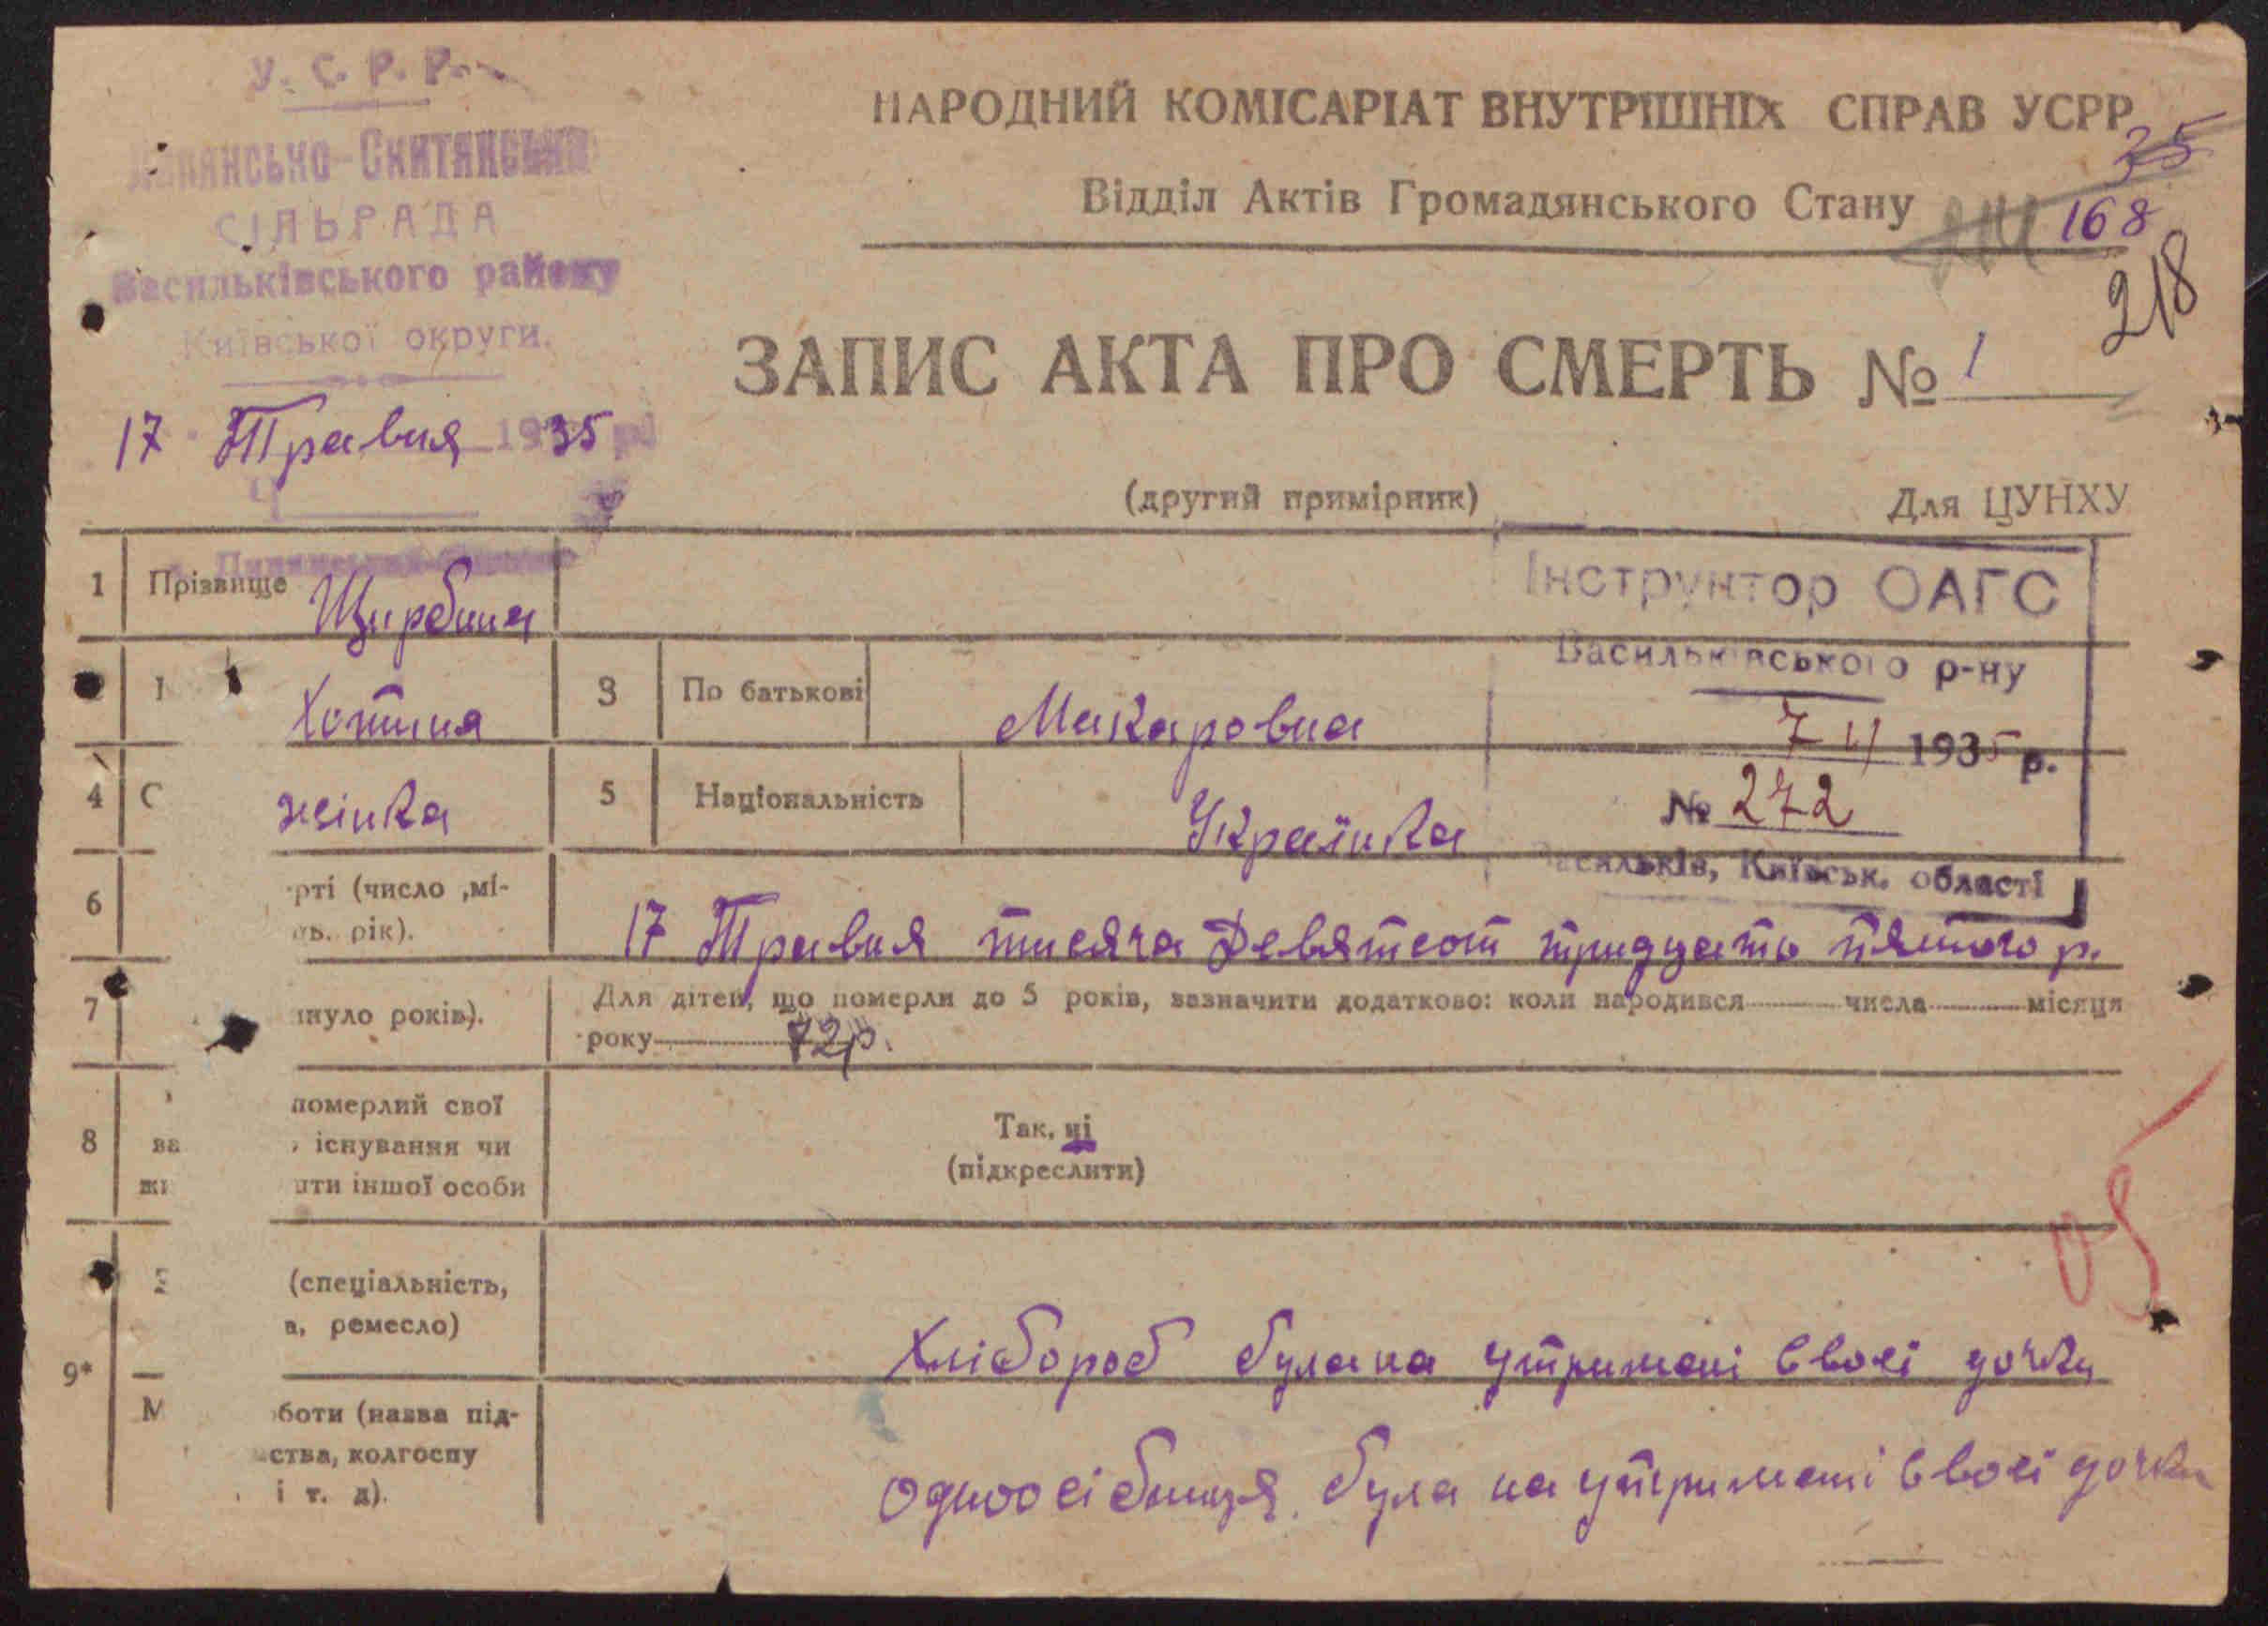 У. С. Р. Р.
СІЛЬРАДА
Васильківського району
Київської округи.
17 Травня 1935 р.
Ч
НАРОДНИЙ КОМІСАРІАТ ВНУТРІШНІХ СПРАВ УСРР
35
Відділ Актів Громадянського Стану
168
218
ЗАПИС АКТА ПРО СМЕРТЬ № 1
(другий примірник)
Для ЦУНХУ
Інструктор ОАГС
Васильківського р-ну
7 VI 1935 р.
№ 272
Васильків, Київськ. області
1 Прізвище Щирбина
Хотина 3 По батькові Макаровна
4 С жінка 5 Національність Українка
6 рті (число ,мі-
ь. рік).
17 Травня тисяча Девятсот тридцать пятого р.
7 инуло років). Для дітей, що померли до 5 років, зазначити додатково: коли народився числа місяця
року 72 р.
8 померлий свої
існування чи
ити іншої особи
Так, ні
(підкреслити)
9* (спеціальність,
а, ремесло)
Хлібороб була на утримані своєї дочки
М боти (назва під-
ства, колгоспу
і т. д).
одноосібниця. була на утримані своєї дочки